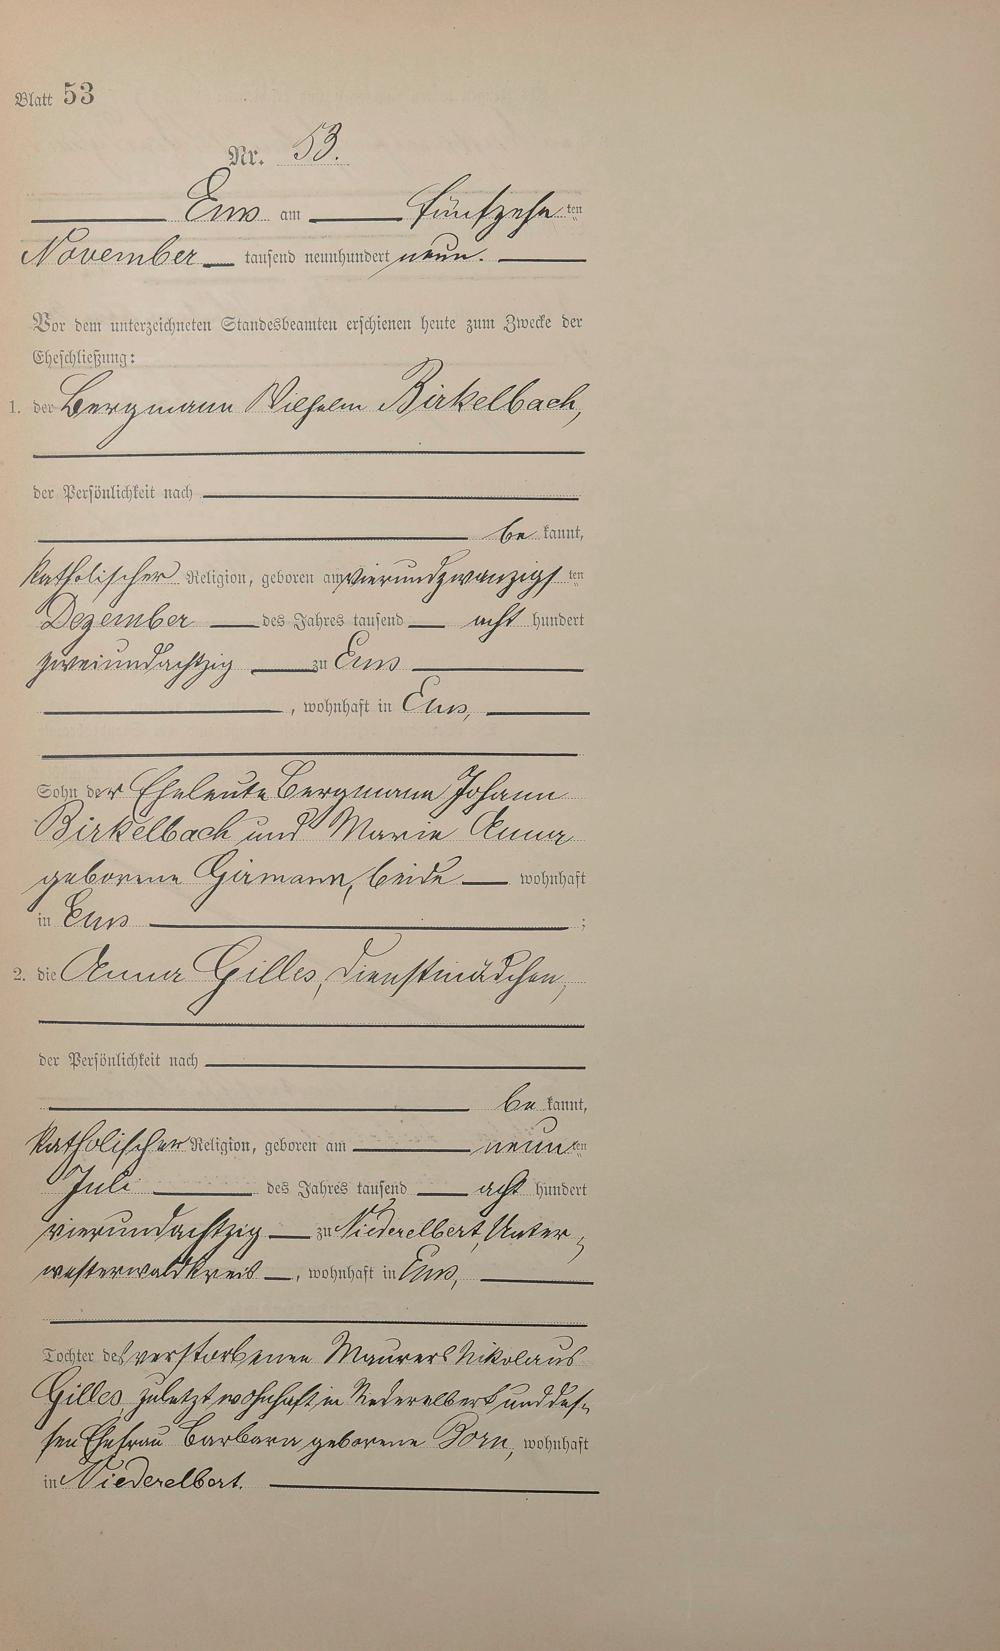 Blatt 53
Nr. 53.
Ems am fünfzehnten
November tausend neunhundert neun.
Vor dem unterzeichneten Standesbeamten erschienen heute zum Zwecke der
Eheschließung:
1. der Bergmann Wilhelm Birkelbach,
der Persönlichkeit nach
be kannt,
katholischer Religion, geboren am vierundzwanzigsten
Dezember des Jahres tausend acht hundert
zweiundachtzig zu Ems
, wohnhaft in Ems,
Sohn der Eheleute Bergmann Johann
Birkelbach und Marie Anna
geborene Girmann, beide wohnhaft
in Ems ;
2. die Anna Gilles, Dienstmädchen,
der Persönlichkeit nach
be kannt,
katholischer Religion, geboren am neunten
Juli des Jahres tausend acht hundert
vierundachtzig zu Niederelbert, Unter-
westerwaldkreis , wohnhaft in Ems,
Tochter des verstorbenen Maurers Nikolaus
Gilles, zuletzt wohnhaft in Niederelbert und des-
sen Ehefrau Barbara geborene Born, wohnhaft
in Niederelbert.